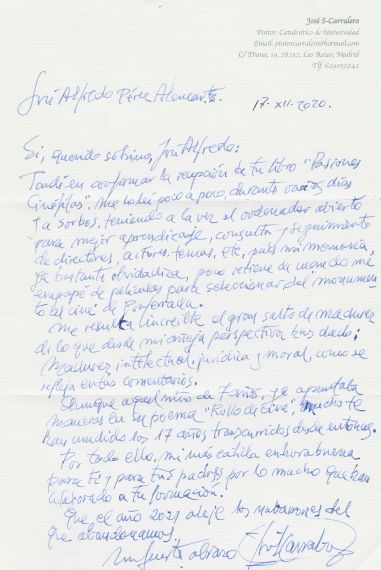 José S-Carralero
Pintor. Catedrático de Universidad
Email: pintorcarralero@hotmail.com
C/ Diana, 19, 28232, Las Rozas, Madrid
Tlf: 629053242
José Alfredo Pérez Alencart.
17-XII-2020.
Sí, querido sobrino, José Alfredo:
Tardé en confirmar la recepción de tu libro "Pasiones
Cinéfilas". Me lo leí poco a poco, durante varios días
y a sorbos, teniendo a la vez el ordenador abierto
para mejor aprendizaje, consulta y seguimiento
de directores, actores, temas, etc, pues mi memoria,
ya bastante olvidadiza, poco retiene de cuando me
empapé de películas para seleccionar del monumen-
to al cine de Ponferrada.
Me resulta increíble el gran salto de madurez
de lo que desde mi añeja perspectiva has dado;
Madurez intelectual, jurídica y moral, como se
refleja en tus comentarios.
Aunque aquel niño de 7 años, ya apuntaba
maneras en su poema "Rollo de Cine", mucho te
han cundido los 17 años transcurridos desde entonces.
Por todo ello, mi más cálida enhorabuena
para ti y para tus padres por lo mucho que han
colaborado a tu formación.
Que el año 2021 aleje los nubarrones del
que abandonamos.
Un fuerte abrazo José Carralero